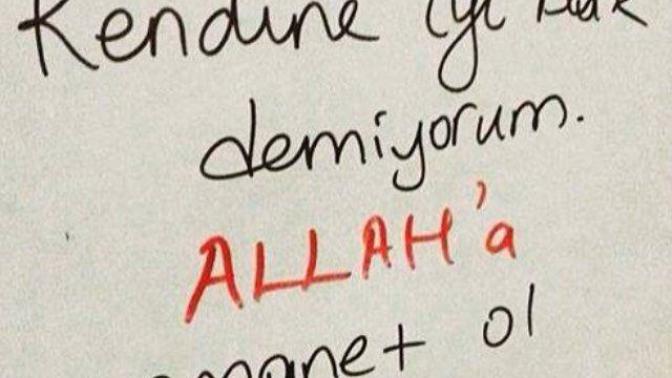 Kendine iyi bak
demiyorum.
ALLAH'a
emanet ol